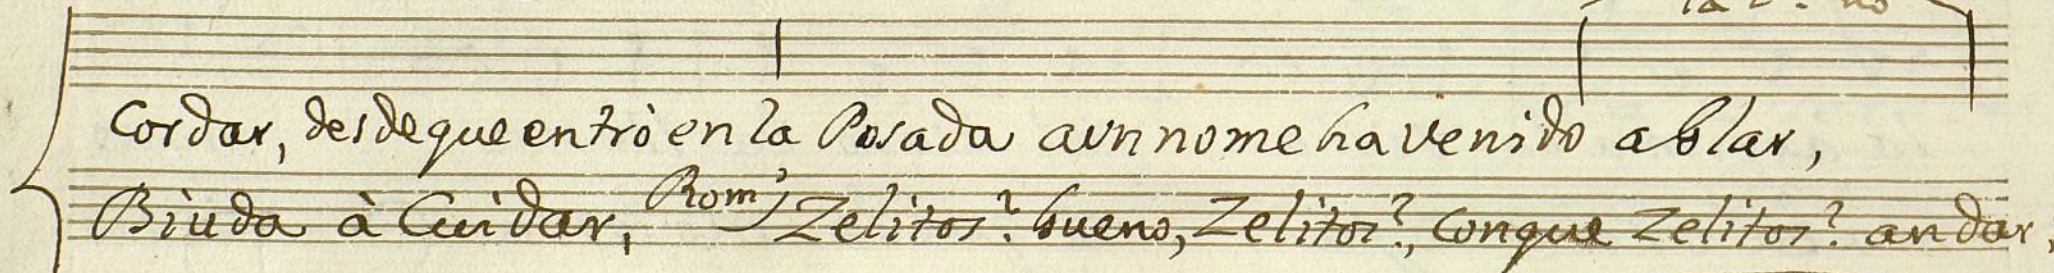 Cordar, desde que entrò en la Posada aun no me ha venido ablar,
Biuda à Cuidar, Rom.º Zelitos? bueno, Zelitos?, conque Zelitos? andar,